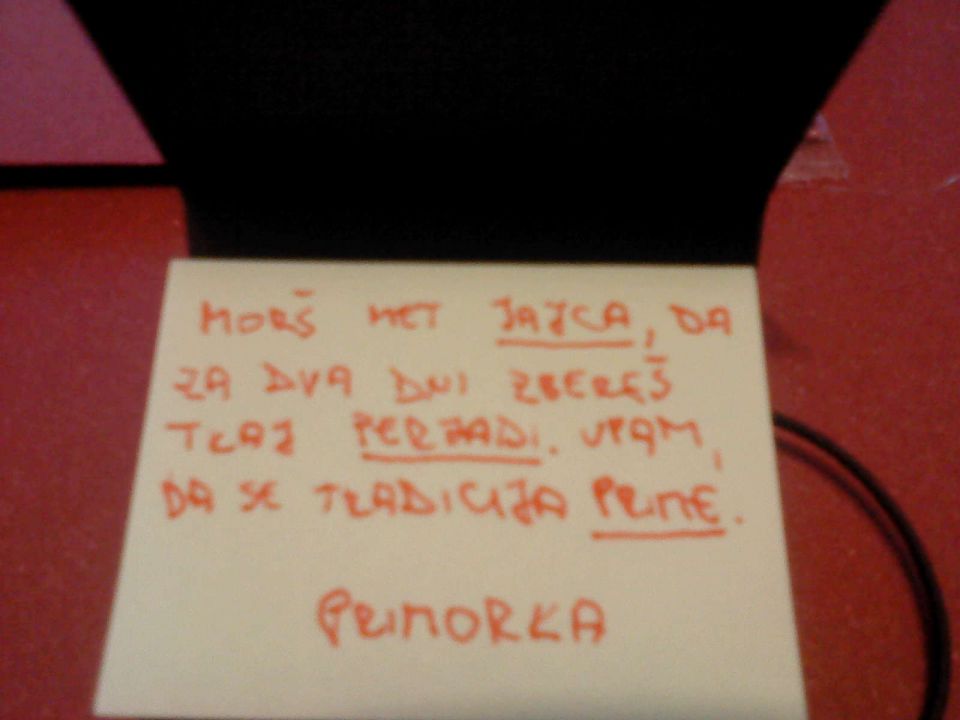 MORŠ MET JAJCA, DA
ZA DVA DNI ZBEREŠ
TLAJ PERJADI. UPAM,
DA SE TRADICIJA PRIME.
PRIMORKA